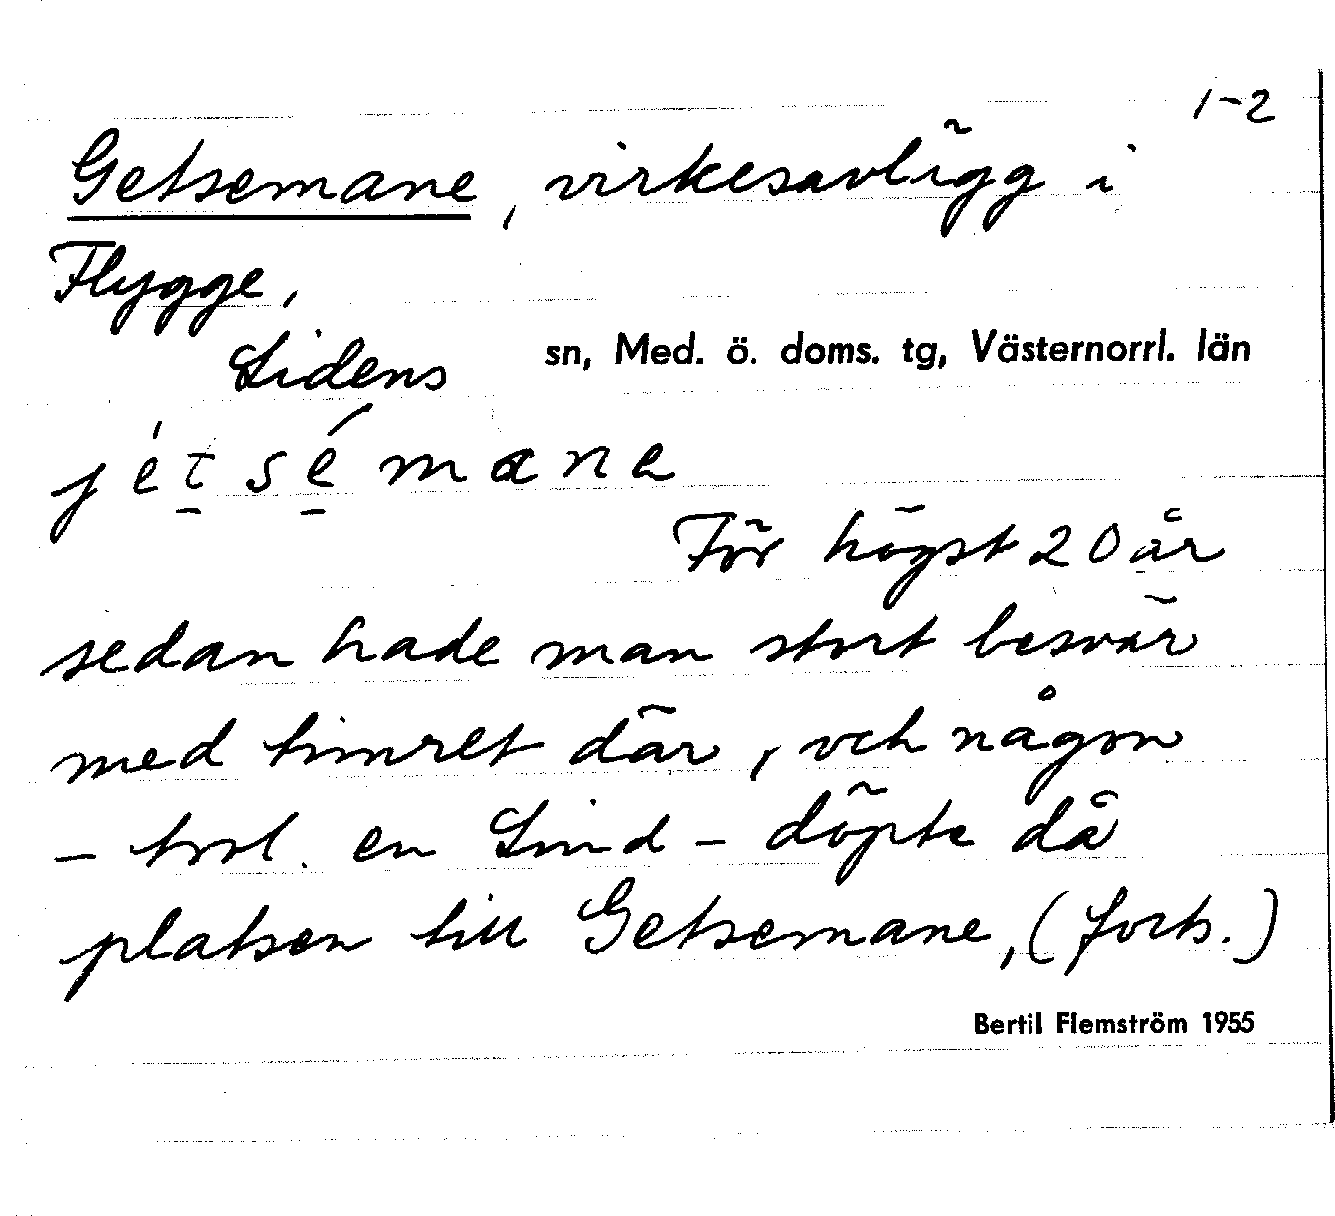 1-2
Getsemane, virkesavlägg i
Flygge,
Lidens sn, Med. ö. doms. tg, Västernorrl. län
För högst 20 år
sedan hade man stort besvär
med timret där, och någon
– trol. en Lind – döpte då
platsen till Getsemane, (forts.)
Bertil Flemström 1955